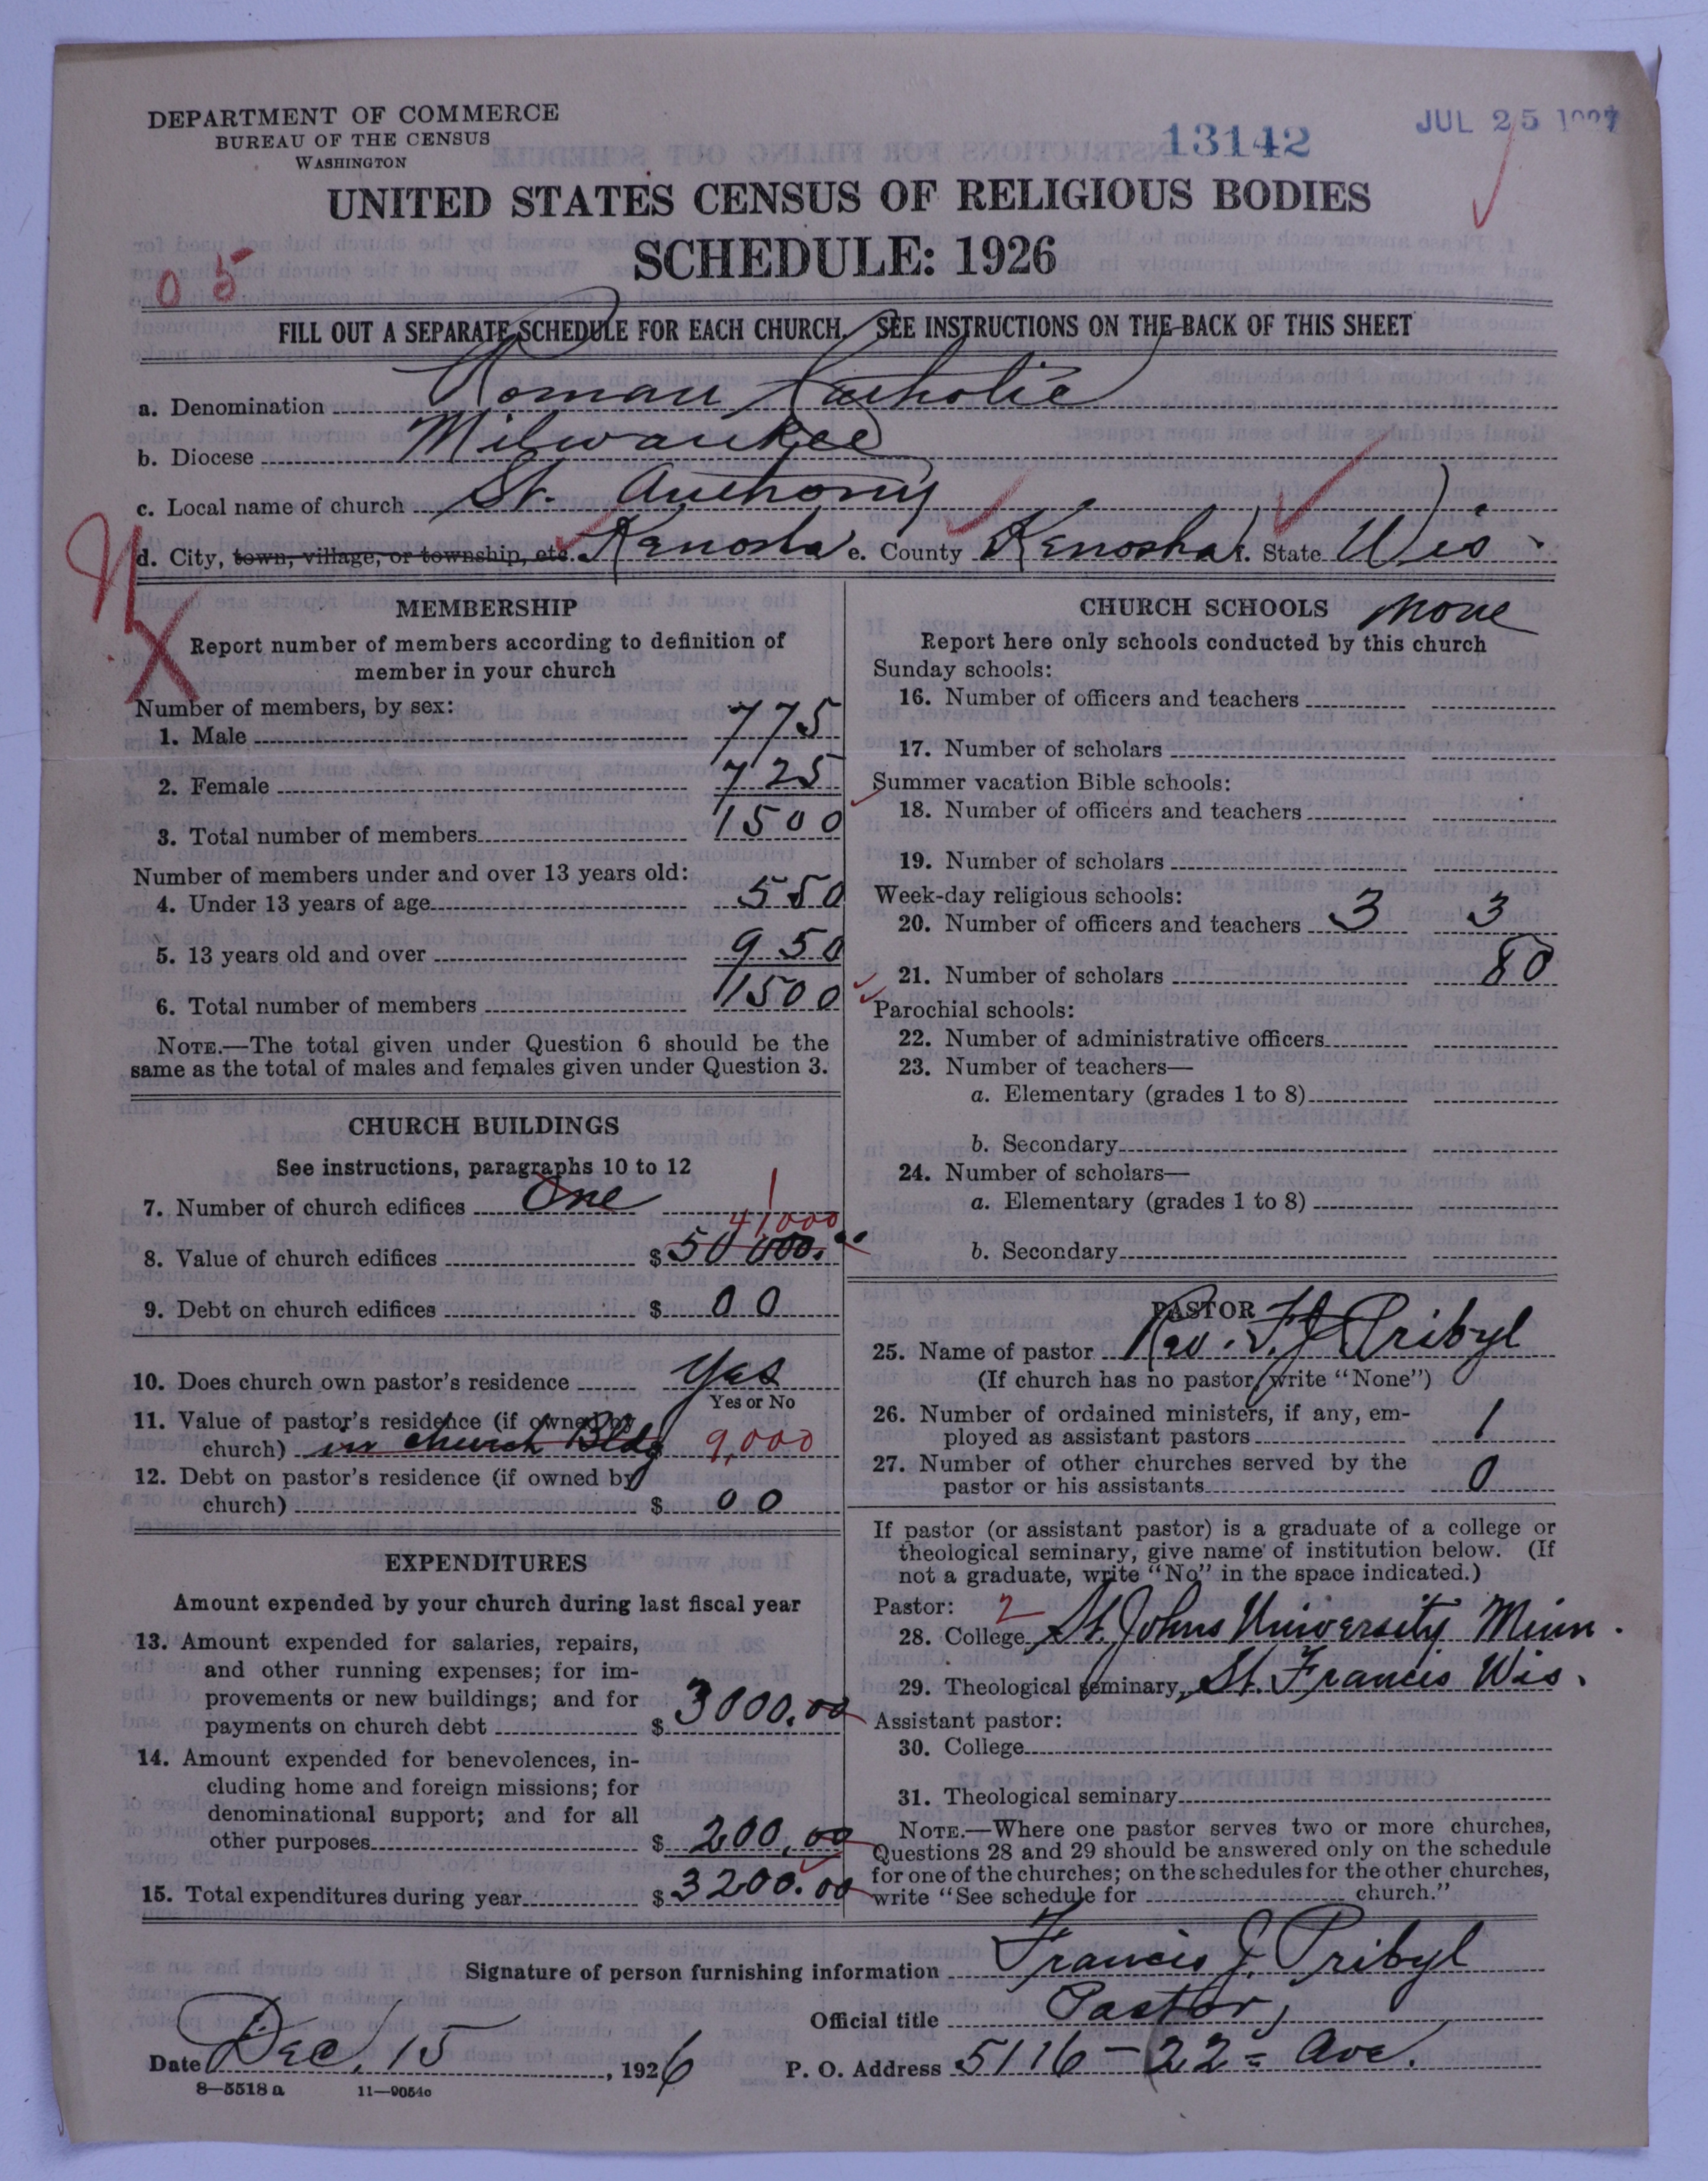 DEPARTMENT OF COMMERCE
BUREAU OF THE CENSUS
WASHINGTON
13142
JUL 25 1927
UNITED STATES CENSUS OF RELIGIOUS BODIES
SCHEDULE: 1926
05
FILL OUT A SEPARATE SCHEDULE FOR EACH CHURCH. SEE INSTRUCTIONS ON THE BACK OF THIS SHEET
a. Denomination Roman Catholic
b. Diocese Milwaukee
c. Local name of church St. Anthony
d. City, town, village, or township, etc. Kenosha e. County Kenosha f. State Wis.
MEMBERSHIP
Report number of members according to definition of
member in your church
Number of members, by sex:
1. Male 775
2. Female 725
3. Total number of members 1500
Number of members under and over 13 years old:
4. Under 13 years of age 550
5. 13 years old and over 950
6. Total number of members 1500
NOTE.—The total given under Question 6 should be the
same as the total of males and females given under Question 3.
CHURCH BUILDINGS
See instructions, paragraphs 10 to 12
7. Number of church edifices One 1
41000
8. Value of church edifices $ 50 000.00
9. Debt on church edifices $ 00
10. Does church own pastor's residence Yes
Yes or No
11. Value of pastor's residence (if owned by
church) in church Bldg 9,000
12. Debt on pastor's residence (if owned by
church) $ 00
EXPENDITURES
Amount expended by your church during last fiscal year
13. Amount expended for salaries, repairs,
and other running expenses; for im-
provements or new buildings; and for
payments on church debt $ 3000.00
14. Amount expended for benevolences, in-
cluding home and foreign missions; for
denominational support; and for all
other purposes $ 200.00
15. Total expenditures during year $ 3200.00
CHURCH SCHOOLS None
Report here only schools conducted by this church
Sunday schools:
16. Number of officers and teachers
17. Number of scholars
Summer vacation Bible schools:
18. Number of officers and teachers
19. Number of scholars
Week-day religious schools:
20. Number of officers and teachers 3 3
21. Number of scholars 80
Parochial schools:
22. Number of administrative officers
23. Number of teachers—
a. Elementary (grades 1 to 8)
b. Secondary
24. Number of scholars—
a. Elementary (grades 1 to 8)
b. Secondary
PASTOR
25. Name of pastor Rev. F. J. Pribyl
(If church has no pastor, write "None")
26. Number of ordained ministers, if any, em-
ployed as assistant pastors 1
27. Number of other churches served by the
pastor or his assistants 0
If pastor (or assistant pastor) is a graduate of a college or
theological seminary, give name of institution below. (If
not a graduate, write "No" in the space indicated.)
Pastor: 2
28. College St. Johns University Minn.
29. Theological seminary St. Francis Wis.
Assistant pastor:
30. College
31. Theological seminary
NOTE.—Where one pastor serves two or more churches,
Questions 28 and 29 should be answered only on the schedule
for one of the churches; on the schedules for the other churches,
write "See schedule for church."
Signature of person furnishing information Francis J. Pribyl
Official title Pastor,
Date Dec. 15, 1926 P. O. Address 5116-22= Ave.
8-5518 a 11-9054c